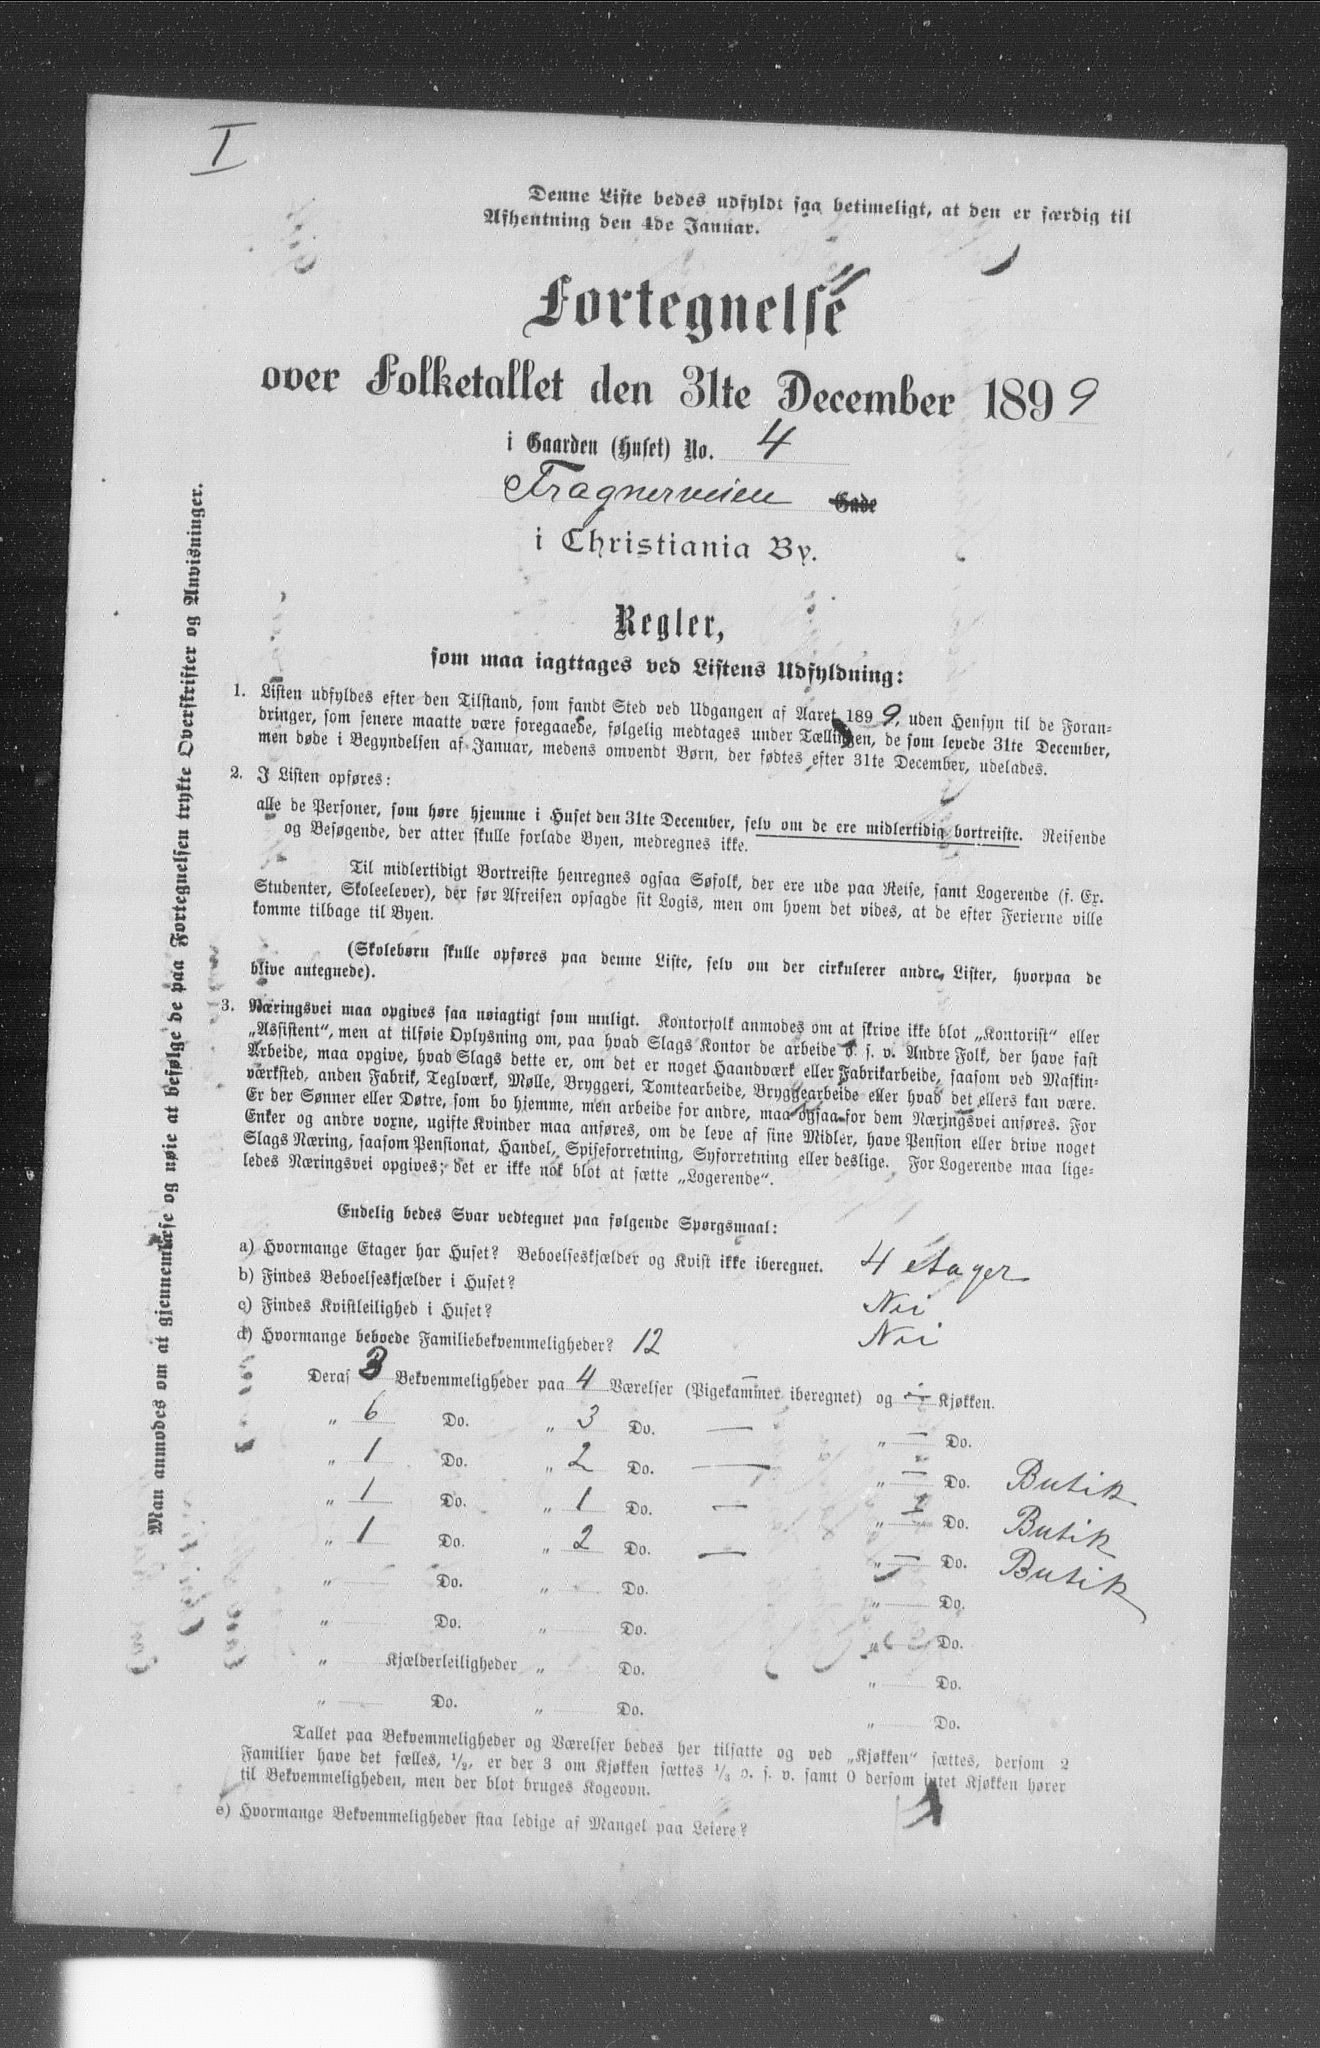 I
Denne Liste bedes udfyldt saa betimeligt, at den er færdig til
Afhentning den 4de Januar.
Fortegnelse
over Folketallet den 31te December 1899
i Gaarden (Huset) No. 4
Frognerveien Gade
i Christiania By.
Regler,
som maa iagttages ved Listens Udfyldning:
1. Listen udfyldes efter den Tilstand, som fandt Sted ved Udgangen af Aaret 1899, uden Hensyn til de Foran-
dringer, som senere maatte være foregaaede, følgelig medtages under Tællingen, de som levede 31te December,
men døde i Begyndelsen af Januar, medens omvendt Børn, der fødtes efter 31te December, udelades.
2. I Listen opføres:
alle de Personer, som høre hjemme i Huset den 31te December, selv om de ere midlertidig bortreiste. Reisende
og Besøgende, der atter skulle forlade Byen, medregnes ikke.
Til midlertidigt Bortreiste henregnes ogsaa Søfolk, der ere ude paa Reise, samt Logerende (f. Ex.
Studenter, Skoleelever), der før Afreisen opsagde sit Logis, men om hvem det vides, at de efter Ferierne ville
komme tilbage til Byen.
(Skolebørn skulle opføres paa denne Liste, selv om der cirkulerer andre Lister, hvorpaa de
blive antegnede).
3. Næringsvei maa opgives saa nøiagtigt som muligt. Kontorfolk anmodes om at skrive ikke blot „Kontorist“ eller
„Assistent“, men at tilføie Oplysning om, paa hvad Slags Kontor de arbeide o. s. v. Andre Folk, der have fast
Arbeide, maa opgive, hvad Slags dette er, om det er noget Haandværk eller Fabrikarbeide, saasom ved Maskin-
værksted, anden Fabrik, Teglværk, Mølle, Bryggeri, Tomtearbeide, Bryggearbeide eller hvad det ellers kan være.
Er der Sønner eller Døtre, som bo hjemme, men arbeide for andre, maa ogsaa for dem Næringsvei anføres. For
Enker og andre vorne, ugifte Kvinder maa anføres, om de leve af sine Midler, have Pension eller drive noget
Slags Næring, saasom Pensionat, Handel, Spiseforretning, Syforretning eller deslige. For Logerende maa lige-
ledes Næringsvei opgives; det er ikke nok blot at sætte „Logerende“.
Endelig bedes Svar vedtegnet paa følgende Spørgsmaal:
a) Hvormange Etager har Huset? Beboelseskjælder og Kvist ikke iberegnet. 4 etager
b) Findes Beboelseskjælder i Huset? Nei
c) Findes Kvistleilighed i Huset? Nei
d) Hvormange beboede Familiebekvemmeligheder? 12
Deraf 3 Bekvemmeligheder paa 4 Værelser (Pigekammer iberegnet) og Kjøkken.
„ 6 Do. „ 3 Do. — „ — Do.
„ 1 Do. „ 2 Do. — „ — Do. Butik
„ 1 Do. „ 1 Do. — „ 1 Do. Butik
„ 1 Do. „ 2 Do. — „ — Do. Butik
„ Do. „ Do. „ Do.
„ Do. „ Do. „ Do.
„ Kjælderleiligheder „ Do. „ Do.
„ Do. „ Do. „ Do.
Tallet paa Bekvemmeligheder og Værelser bedes her tilsatte og ved „Kjøkken“ sættes, dersom 2
Familier have det fælles, 1/2, er der 3 om Kjøkken sættes 1/3 o. s. v. samt 0 dersom intet Kjøkken hører
til Bekvemmeligheden, men der blot bruges Kogeovn.
e) Hvormange Bekvemmeligheder staa ledige af Mangel paa Leiere?
Man anmodes om at gjennemlæse og nøie at befølge de paa Fortegnelsen trykte Overskrifter og Anvisninger.